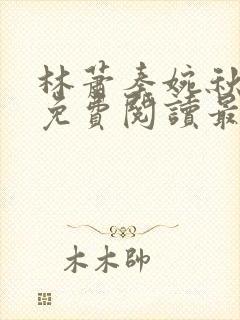 林蕭秦婉秋
免費閱讀最
木木帥